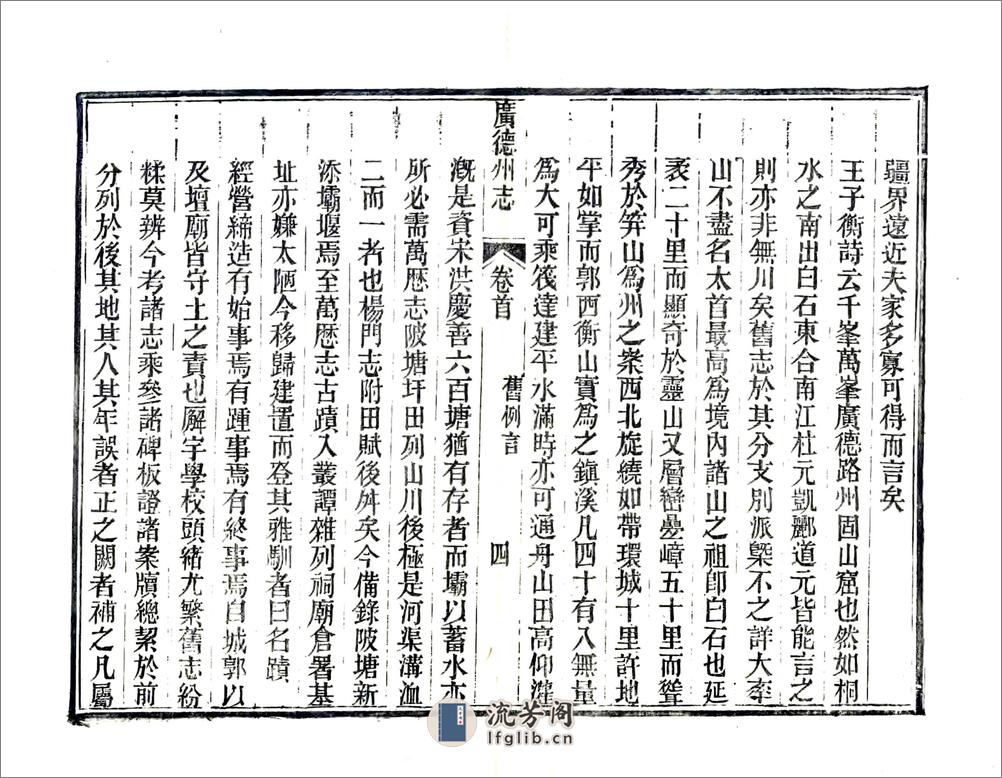 疆界遠近夫家多寡可得而言矣
王子衡詩云千峯萬峯廣德路州固山窟也然如桐
水之南出白石東合南江杜元凱酈道元皆能言之
則亦非無川矣舊志於其分支別派槩不之詳大率
山不盡名太首最高為境內諸山之祖卽白石也延
袤二十里而顯奇於靈山又層巒疊嶂五十里而聳
秀於笄山為州之案西北旋繞如帶環城十里許地
平如掌而郭西衡山實為之鎮溪凡四十有八無量
為大可乘筏達建平水滿時亦可通舟山田高仰灌
廣德州志 卷首 舊例言 四
溉是資宋洪慶善六百塘猶有存者而壩以蓄水亦
所必需萬歷志陂塘圩田列山川後極是河渠溝洫
二而一者也楊門志附田賦後舛矣今備錄陂塘新
添壩堰焉至萬歷志古蹟入叢譚雜列祠廟倉署基
址亦嫌太陋今移歸建置而登其雅馴者曰名蹟
經營締造有始事焉有踵事焉有終事焉自城郭以
及壇廟皆守土之責也廨宇學校頭緒尤繁舊志紛
糅莫辨今考諸志乘參諸碑板證諸案牘總挈於前
分列於後其地其人其年誤者正之闕者補之凡屬
流芳阁
lfglib.cn